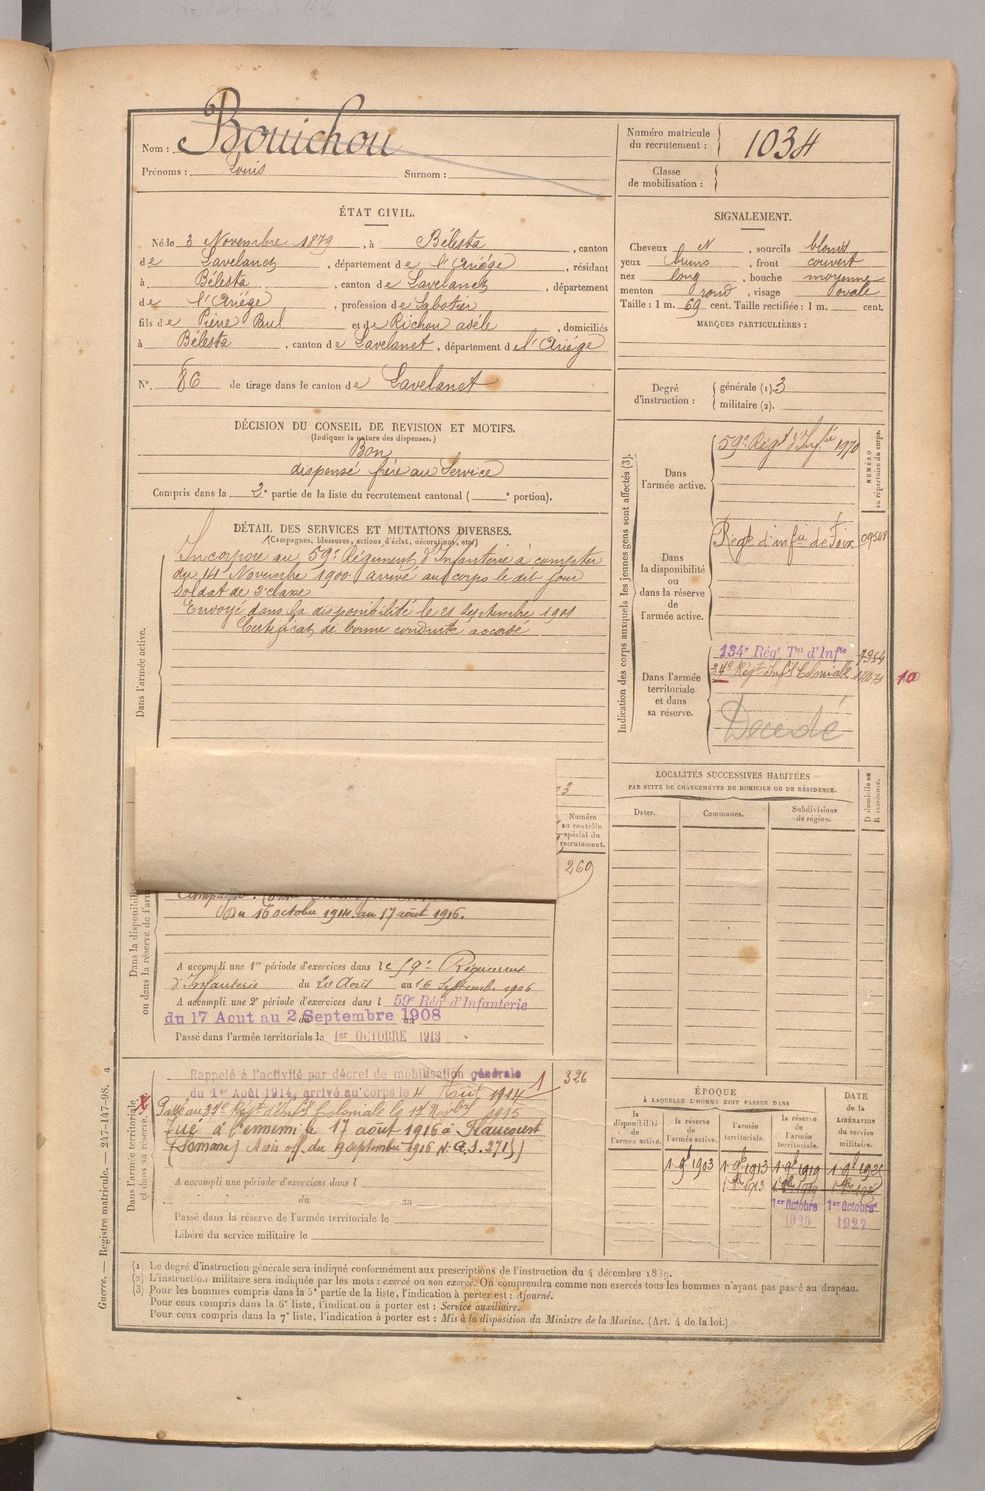 Nom : Bouichou
Prénoms : Louis Surnom :
Numéro matricule du recrutement : 1034
Classe de mobilisation :
ÉTAT CIVIL.
Né le 3 Novembre 1879, à Bélesta, canton
de Lavelanet, département de l'Ariége, résidant
à Bélesta, canton de Lavelanet, département
de l'Ariége, profession de Sabotier
fils de Pierre Paul et de Richou adèle, domiciliés
à Bélesta, canton de Lavelanet, département de l'Ariége
N° 86 de tirage dans le canton de Lavelanet
SIGNALEMENT.
Cheveux N, sourcils blonds
yeux bruns, front couvert
nez long, bouche moyenne
menton rond, visage ovale
Taille : 1 m. 69 cent. Taille rectifiée : 1 m. cent.
MARQUES PARTICULIÈRES :
Degré d'instruction : générale (1). 3
militaire (2).
DÉCISION DU CONSEIL DE REVISION ET MOTIFS.
(Indiquer la nature des dispenses.)
Bon
dispensé frère au Service
Compris dans la 2e partie de la liste du recrutement cantonal ( e portion).
DÉTAIL DES SERVICES ET MUTATIONS DIVERSES.
(Campagnes, blessures, actions d'éclat, décorations, etc.)
Dans l'armée active.
Incorporé au 59e Régiment d'Infanterie à compter
du 14 Novembre 1900. arrivé au corps le dit jour
Soldat de 2e classe
Envoyé dans la disponibilité le 21 Septembre 1901
Certificat de bonne conduite accordé
3
Numéro au contrôle spécial du recrutement.
269
Dans la disponibilité
ou dans la réserve de l'armée
du 16 octobre 1914 au 17 août 1916.
A accompli une 1re période d'exercices dans le 59e Régiment
d'Infanterie du 20 Août au 16 Septembre 1906
A accompli une 2e période d'exercices dans l 59e Rég' d'Infanterie
du 17 Aout au 2 Septembre 1908
Passé dans l'armée territoriale le 1er OCTOBRE 1913
Dans l'armée territoriale
et dans sa réserve.
Rappelé à l'activité par décret de mobilisation générale
du 1er Août 1914, arrivé au corps le 4 Août 1914
1
326
Passé au 34e Régt d'Infie Coloniale le 17 1915
Tué à l'ennemi le 17 août 1916 à Flaucourt
(Somme) Avis off. du 9 septembre 1916 N. G.J. 2715)
A accompli une période d'exercices dans l
du au
Passé dans la réserve de l'armée territoriale le
Libéré du service militaire le
Indication des corps auxquels les jeunes gens sont affectés (3).
NUMÉRO au répertoire du corps.
Dans l'armée active.
59e Régt d'Infie 1970
Dans la disponibilité ou dans la réserve de l'armée active.
Régt d'infie de Foix
Dans l'armée territoriale et dans sa réserve.
134e Rég' Tal d'Infie
34e Régt Infie Coloniale
10
Décédé
LOCALITÉS SUCCESSIVES HABITÉES
PAR SUITE DE CHANGEMENTS DE DOMICILE OU DE RÉSIDENCE.
Dates. Communes. Subdivisions de région. D domicile ou R résidence.
ÉPOQUE
À LAQUELLE L'HOMME DOIT PASSER DANS
DATE de la LIBÉRATION du service militaire.
la disponibilité de l'armée active. la réserve de l'armée active. l'armée territoriale. la réserve de l'armée territoriale.
1 9bre 1903 1 9bre 1913 1 9bre 1919 1 9bre 1925
1er Octobre 1920 1er Octobre 1927
(1) Le degré d'instruction générale sera indiqué conformément aux prescriptions de l'instruction du 4 décembre 1889.
(2) L'instruction militaire sera indiquée par les mots : exercé ou non exercé. On comprendra comme non exercés tous les hommes n'ayant pas passé au drapeau.
(3) Pour les hommes compris dans la 5e partie de la liste, l'indication à porter est : Ajourné.
Pour ceux compris dans la 6e liste, l'indication à porter est : Service auxiliaire.
Pour ceux compris dans la 7e liste, l'indication à porter est : Mis à la disposition du Ministre de la Marine. (Art. 4 de la loi.)
Guerre. — Registre matricule. — 247-147-98.